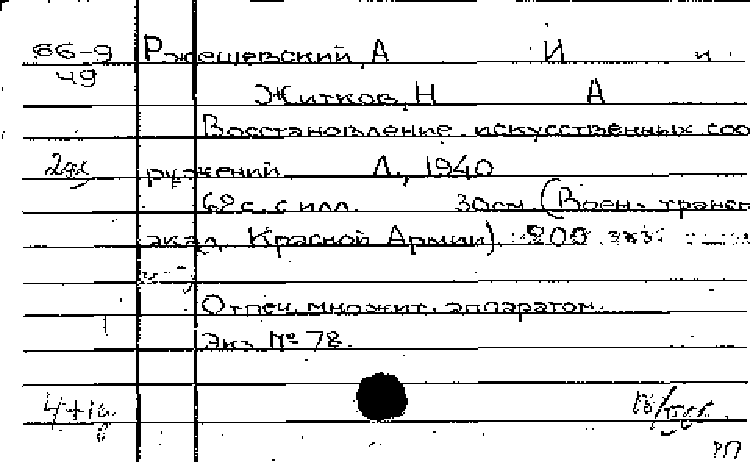 66-9 Ржешевский, А И и
49
Житков, Н А
Восстановление искусственных соо
ружений Л., 1940
62 с. с илл. 30 см. (Воен. трансп
акад. Красной Армии). 200 экз.
Отпеч. множит. аппаратом.
Экз. № 78.
РП